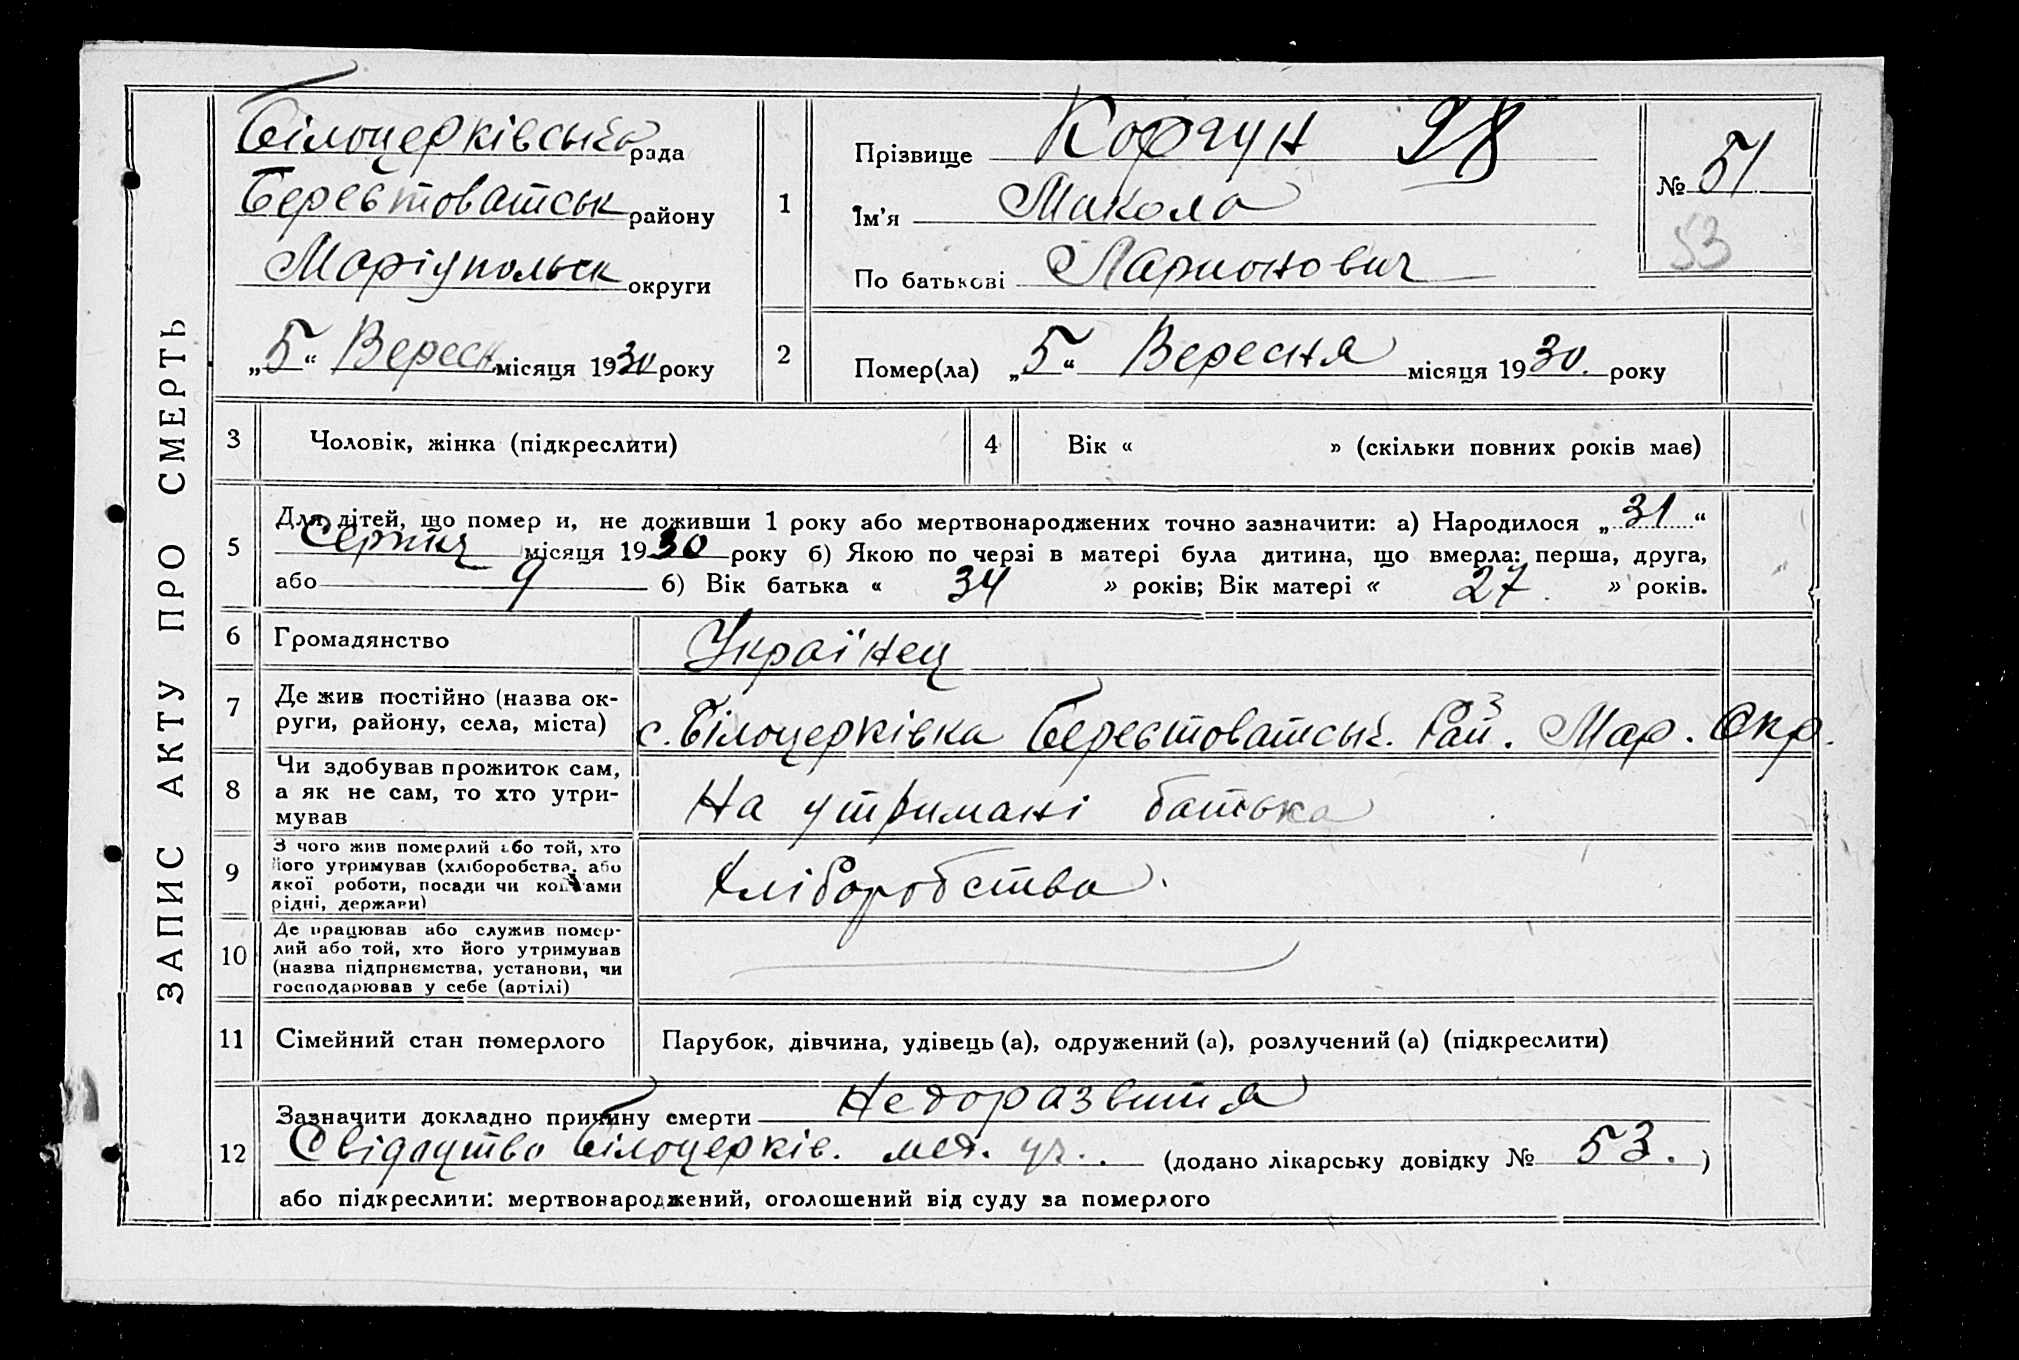 ЗАПИС АКТУ ПРО СМЕРТЬ
Білоцерківська рада
Берестоватськ району
Маріупольск округи
„5“ Вересн місяця 1930 року
1
Прізвище Корчун 98
Ім'я Микола
По батькові Ларионович
№ 51
53
2
Помер(ла) „5“ Вересня місяця 1930. року
3 Чоловік, жінка (підкреслити)
4 Вік « » (скільки повних років має)
5 Для дітей, що помер и, не доживши 1 року або мертвонароджених точно зазначити: а) Народилося „31“
Серпня місяця 1930 року б) Якою по черзі в матері була дитина, що вмерла: перша, друга,
або 9 б) Вік батька « 34 » років; Вік матері « 27. » років.
6 Громадянство Українец
7 Де жив постійно (назва ок-
руги, району, села, міста)
с. Білоцерківка Берестоватськ. Рай. Мар. Окр.
8 Чи здобував прожиток сам,
а як не сам, то хто утри-
мував
На утримані батька
9 З чого жив померлий або той, хто
його утримував (хліборобства, або
якої роботи, посади чи коштами
рідні, держави)
Хліборобства.
10 Де працював або служив помер-
лий або той, хто його утримував
(назва підприємства, установи, чи
господарював у себе (артілі)
11 Сімейний стан померлого Парубок, дівчина, удівець (а), одружений (а), розлучений (а) (підкреслити)
12 Зазначити докладно причину смерти Недоразвитя
Свідоцтво Білоцерків. мед. уч. (додано лікарську довідку № 53. )
або підкреслити: мертвонароджений, оголошений від суду за померлого